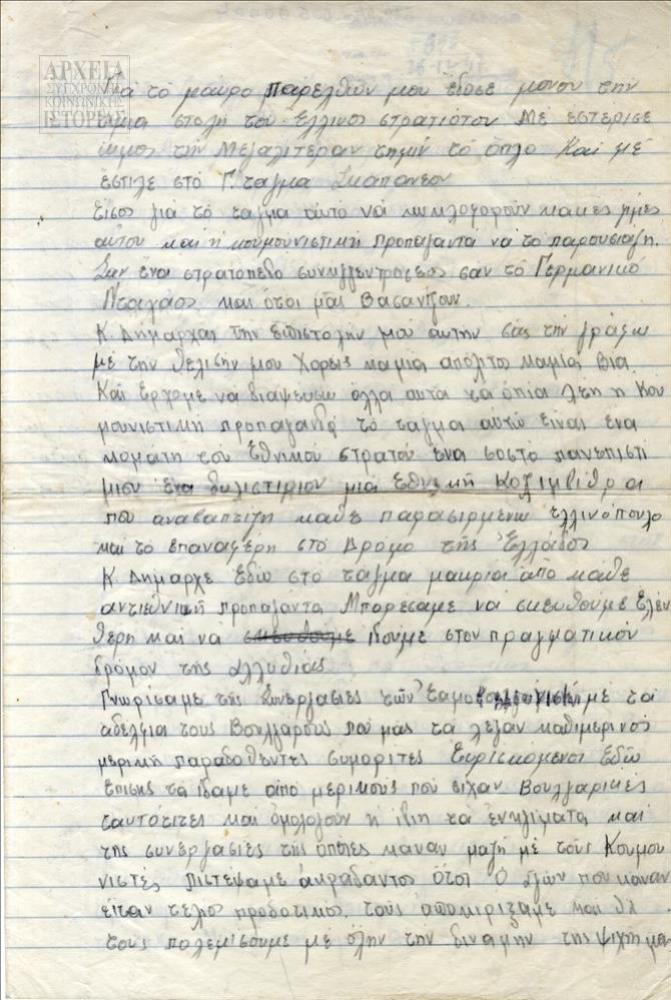 ΑΡΧΕΙΑ
ΣΥΓΧΡΟΝΗΣ
ΚΟΙΝΩΝΙΚΗΣ
ΙΣΤΟΡΙΑΣ
το μαυρο παρελθων μου εδοσε μονον την
τιμια στολη του Ελλινος στρατιοτου Με εστερισε
ομος την Μεγαλιτεραν τημην το οπλο Και με
εστιλε στο Γ. ταγμα Σκαπανεον
Εισος για το ταγμα αυτο να κυκλοφορουν κακες
αυτου και η κουμουνιστικη προπαγαντα να το παρουσιαζη.
Σαν ενα στρατοπεδο συνκγεντροσεος σαν το Γερμανικο
Νταχαου και οτοι μας βασανιζουν.
Κ. Δημαρχαι την επιστολην μου αυτην σας την γραφω
με την θελισην μου Χορεις καμια απολιτος καμια βια
Και ερχομε να διαψευσω ολλα αυτα τα οπια λεγη η Κου
μουνιστικη προπαγανδα το ταγμα αυτω ειναι ενα
κοματη του Εθνικου στρατου ενα σοστο πανεπιστι
μιου ενα διλιστιριον μια Εθνικη Κολιμβιθρα
που αναβαπτιζη καθε παρασιρμενω Ελλινοπουλο
και το επαναφερη στο Δρομο της Ελλαδος
Κ Δημαρχε εδω στο ταγμα μακρια απο καθε
αντιεθνικη προπαγαντα Μπορεσαμε να σκευθουμε Ελευ
θερη και να σκευθουμε δουμε στον πραγματικον
δρομον της αλλιθιας
Γνωρισαμε της συνεργασιες των με τα
αδελφια τους Βουλγαρους που μας τα λεγαν καθιμερινος
μερικη παραδοθεντες συμοριτες Ευρισκομενοι εδω
επισης τα ιδαμε απο μερικους που ειχαν Βουλγαρικες
ταυτοτιτες και ομολογουν η ιδιη τα ενκλιματα και
της συνεργασιες της οποιες καναν μαζη με τους Κουμου
νιστες πιστεψαμε ακραδαντος οτοι ο αγων που καναν
ειταν τελιος προδοτικος. τους αποκιριξαμε και θα
τους πολεμισουμε με ολην την δυναμην της ψιχη μας